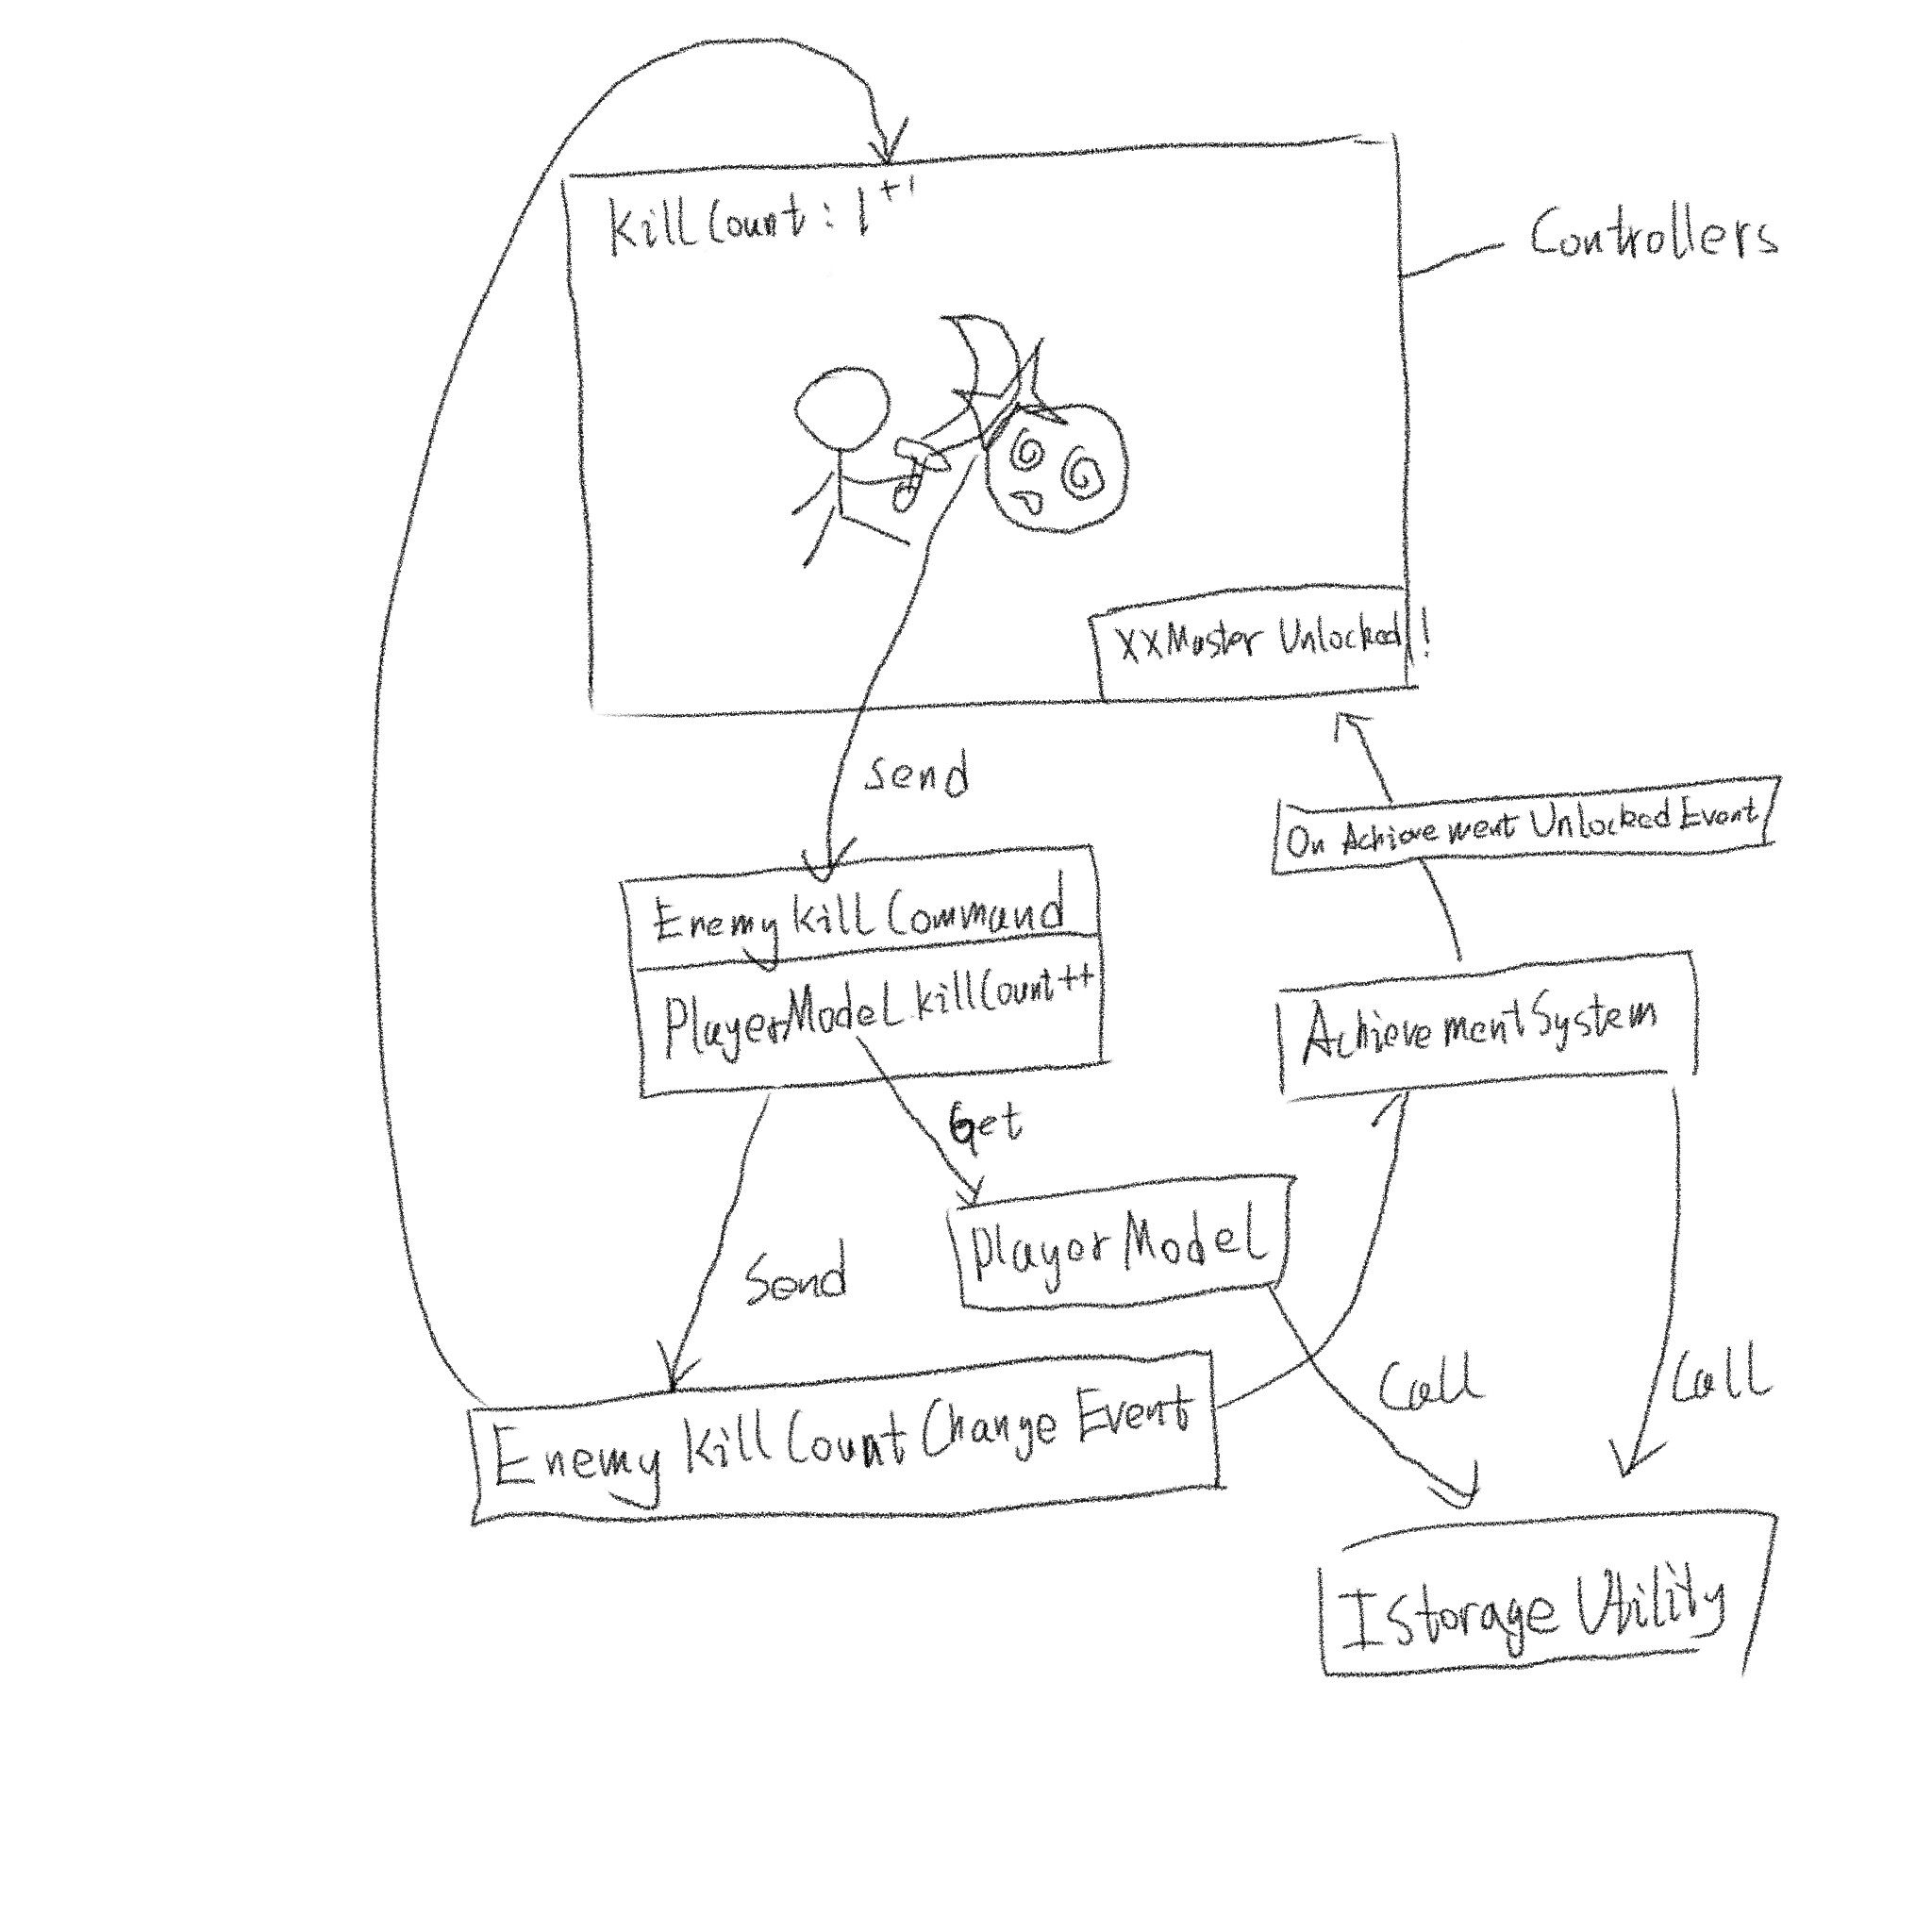 KillCount: 1 +1
Controllers
XXMaster Unlocked!
Send
On Achievement Unlocked Event
Enemy Kill Command
PlayerModel.killCount++
AchievementSystem
Get
PlayerModel
Send
Call
Call
Enemy Kill Count Change Event
IStorage Utility